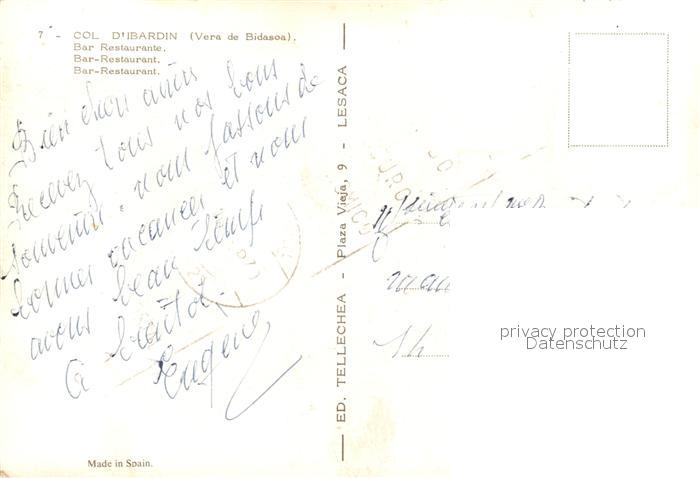 7 - COL D'IBARDIN (Vera de Bidasoa).
Bar Restaurante.
Bar-Restaurant.
Bar-Restaurant.
Bien chers amis
Recevez tous nos bons
souvenirs. nous passons de
bonnes vacances et nous
avons beau temps
A bientôt.
Eugene
Made in Spain.
ED. TELLECHEA - Plaza Vieja, 9 - LESACA
privacy protection
Datenschutz